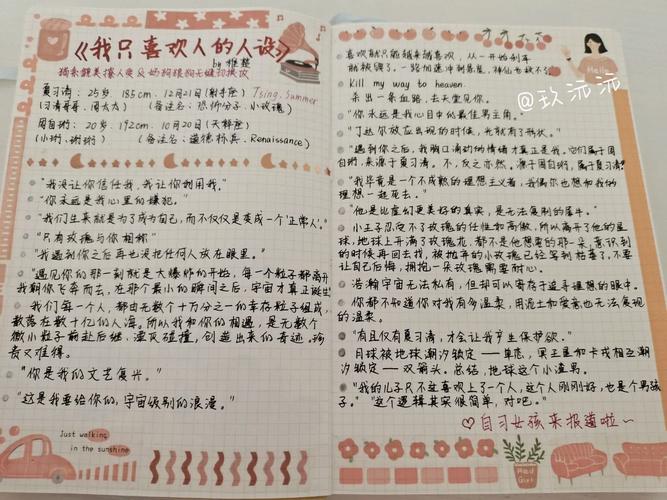 《我只喜欢人的人设》
by 稚楚
夏习清：25岁 185cm 12月21日(射手座) Tsing. Summer
(习清哥哥、周太太) (备注名：恐怖分子、小玫瑰)
周自珩：20岁, 192cm, 10月20日(天秤座)
(小珩、珩珩) (备注名：道德标兵、Renaissance)
"我没让你信任我，我让你利用我。"
"你永远是我心里的嫌犯。"
"我们生来就是为了成为自己，而不仅仅是变成一个'正常人'。"
"只有玫瑰与你相称"
"我遇到你之后再也没把任何人放在眼里。"
"遇见你的那一刻就是大爆炸的开始，每一个粒子都离开
我朝你飞奔而去，在那个最小的瞬间之后，宇宙才真正诞生
我们每一个人，都由无数个十万分之一的幸存粒子组成，
散落在数十亿的人海。所以我和你的相遇，是无数个
微小粒子前赴后继、湮灭碰撞，创造出来的奇迹。珍
贵又难得。
"你是我的文艺复兴。"
"这是我要给你的，宇宙级别的浪漫。"
Just walking
in the sunshine
喜欢就只能越来越喜欢，从一开始刹车
就被锯了，一路加速冲到悬崖，神仙也救不
Kill my way to heaven.
杀出一条血路，去天堂见你。
"你永远是我心目中的最佳男主角。"
"丁达尔效应出现的时候，光就有了形状。"
"遇到你之后，我胸口涌动的情绪才真正是我，它们属于周
自珩，来源于夏习清。不，反之亦然。源于周自珩，属于夏习清。"
"我毕竟是一个不成熟的理想主义者，我偶尔也想和我的
理想一起死去。"
"他是比虚幻更美好的真实，是无法复刻的蜃斗。"
小王子忍受不了玫瑰的任性和高傲，所以离开了他的星
球，地球上开满了玫瑰花，都不是他想要的那一朵，意识到
的时候再回去找，被抛弃的小玫瑰已经等到枯萎了，不要
让自己后悔，拥抱一朵玫瑰需要耐心。
浩瀚宇宙无法私有，但却可以寄存于追寻理想的眼中。
你都不知道你对我有多温柔，用泥土和爱意也无法展现
的温柔。
"有且仅有夏习清，才会让我产生保护欲。"
月球被地球潮汐锁定——单恋，冥王星和卡戎相互潮
汐锁定——双箭头。总结，地球这个小渣男。
"我的儿子只不过喜欢上了一个人，这个人刚刚好，也是个男孩
子。""这个逻辑其实很简单，对吧。"
♡自习女孩来报道啦~
Hello
@玖沅沅